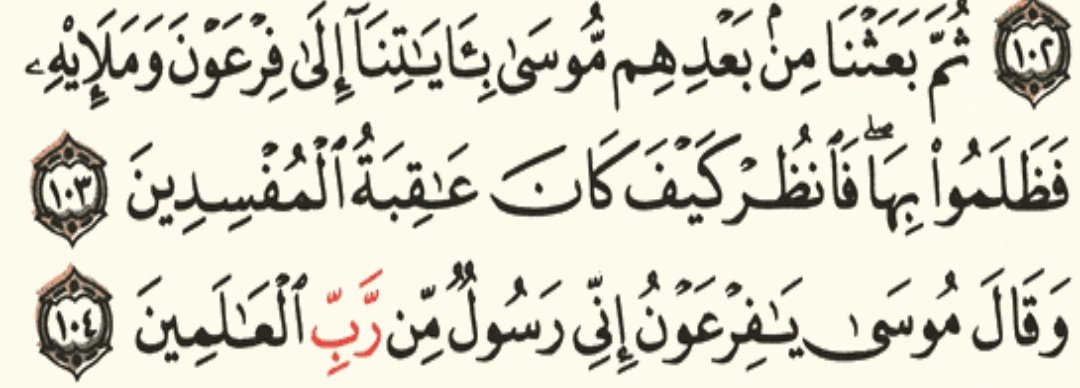 ١٠٢ ثُمَّ بَعَثْنَا مِنۢ بَعْدِهِم مُّوسَىٰ بِـَٔايَـٰتِنَآ إِلَىٰ فِرْعَوْنَ وَمَلَإِي۟هِۦ
فَظَلَمُوا۟ بِهَا ۖ فَٱنظُرْ كَيْفَ كَانَ عَـٰقِبَةُ ٱلْمُفْسِدِينَ ١٠٣
وَقَالَ مُوسَىٰ يَـٰفِرْعَوْنُ إِنِّى رَسُولٌ مِّن رَّبِّ ٱلْعَـٰلَمِينَ ١٠٤